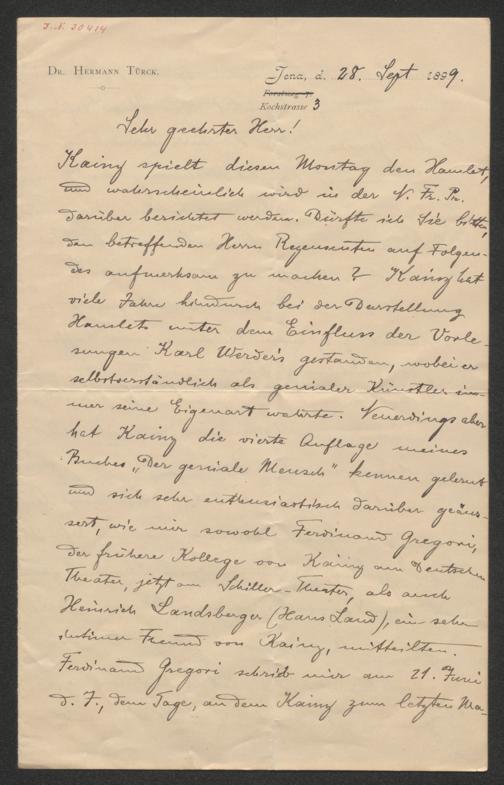 J. N. 30414
Dr. Hermann Türck.
Jena, d. 28. Sept 1899.
Forstweg 7.
Kochstrasse 3
Sehr geehrter Herr!
Kainz spielt diesen Montag den Hamlet,
und wahrscheinlich wird in der N. Fr. Pr.
darüber berichtet werden. Dürfte ich Sie bitten,
den betreffenden Herrn Regensenten auf Folgen-
des aufmerksam zu machen? Kainz hat
viele Jahre hindurch bei der Darstellung
Hamlets unter dem Einfluss der Vorle-
sungen Karl Werder's gestanden, wobei er
selbstverständlich als genialer Künstler im-
mer seine Eigenart wahrte. Neuerdings aber
hat Kainz die vierte Auflage meines
Buches „Der geniale Mensch" kennen gelernt
und sich sehr enthusiastisch darüber geäus-
sert, wie mir sowohl Ferdinand Gregori,
der frühere Kollege von Kainz am Deutschen
Theater, jetzt am Schiller-Theater, als auch
Heinrich Landsberger (Hans Land), ein sehr
intimer Freund von Kainz, mitteilten.
Ferdinand Gregori schrieb mir am 21. Juni
d. J., dem Tage, an dem Kainz zum letzten Ma-